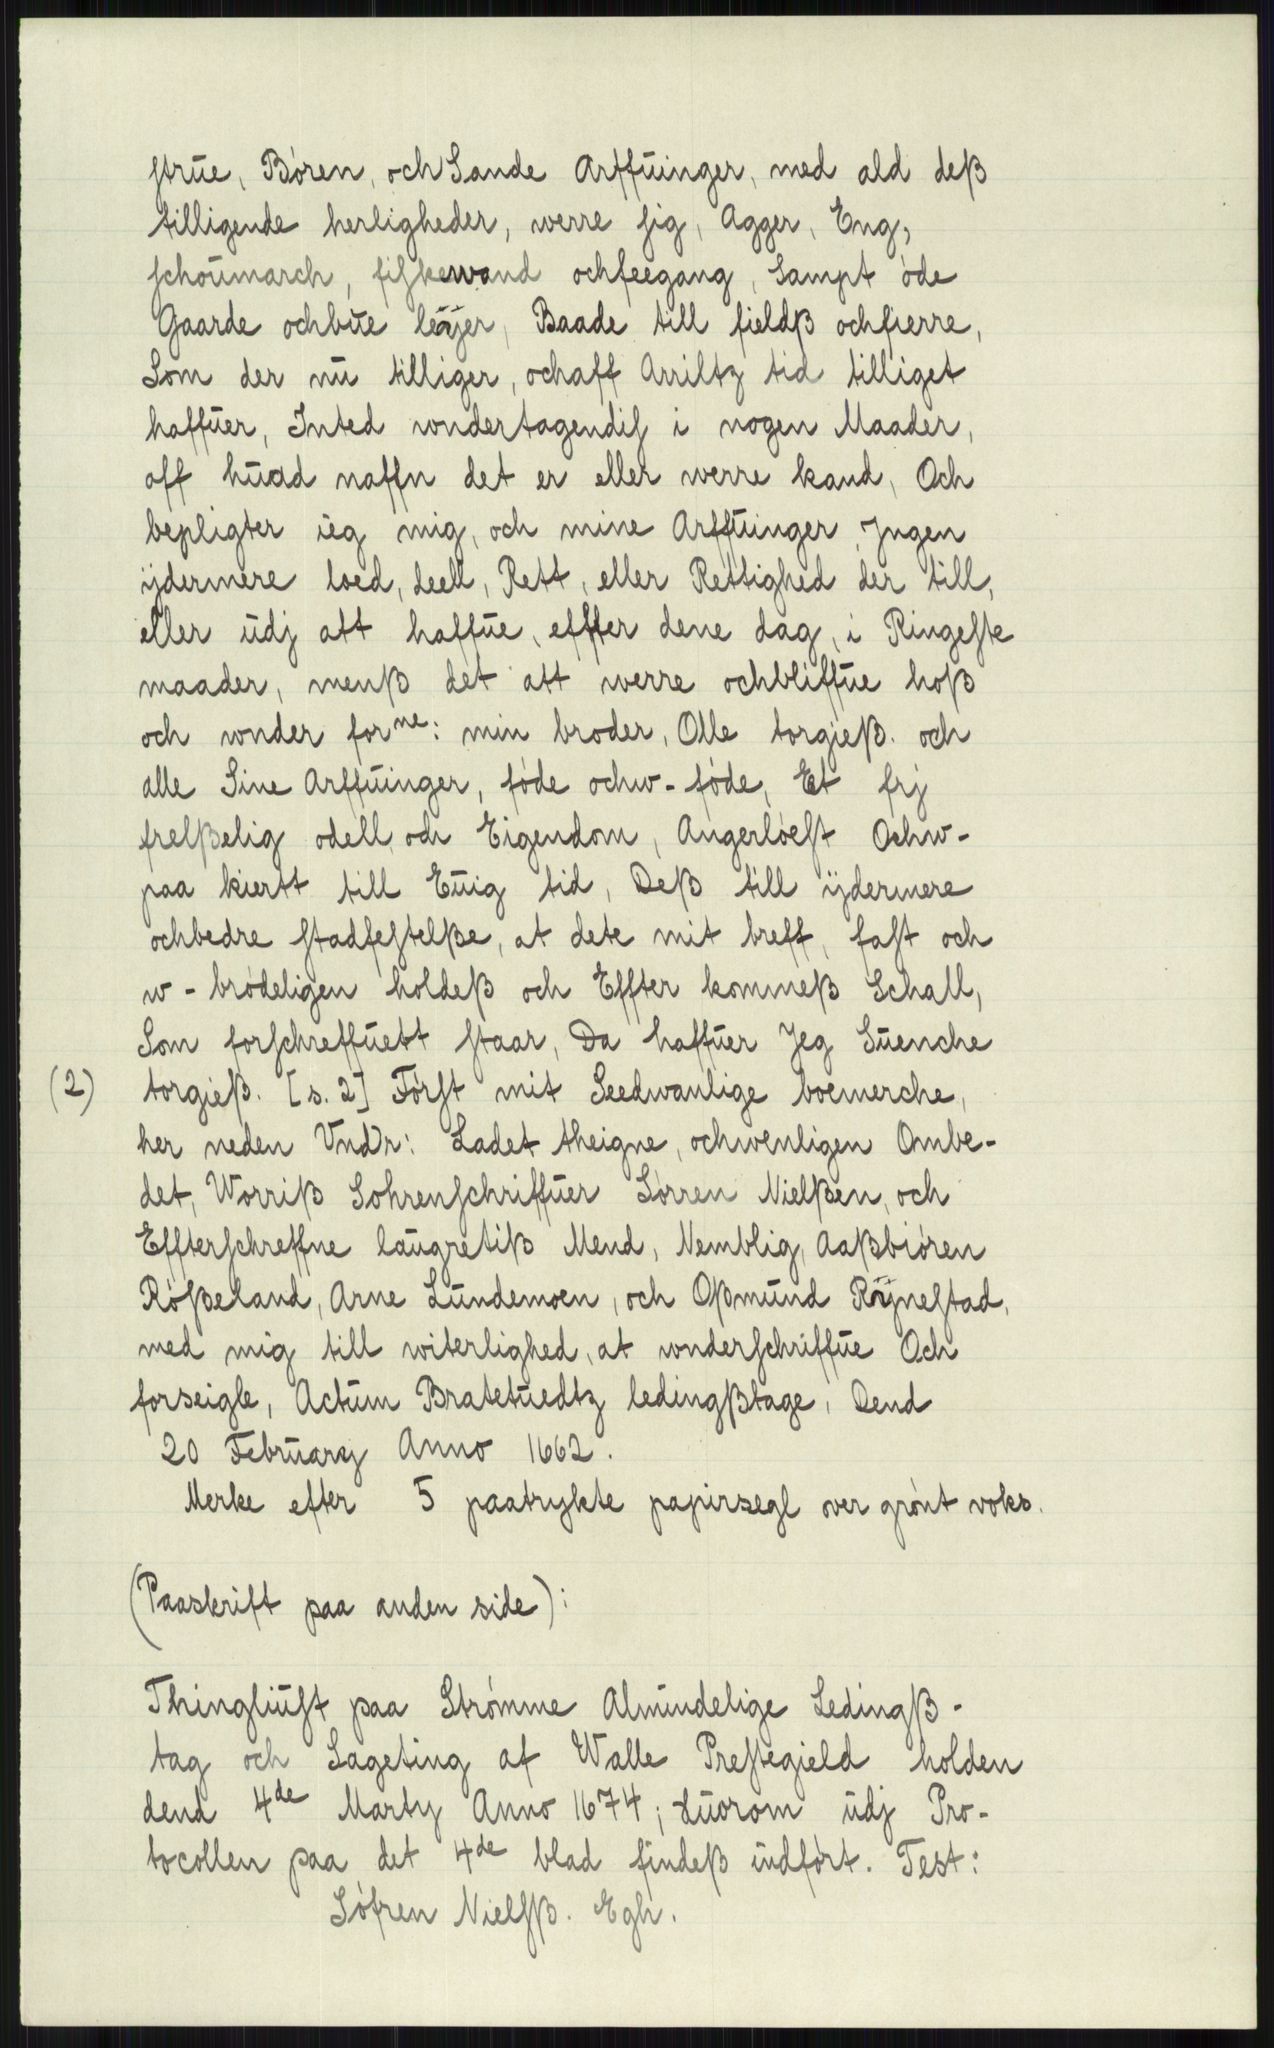 ſtrŭe, Bóren, och Sande Arffŭinger, med ald deß
tilligende herligheder, werre ſig, Agger, Eng,
ſchoŭmarch, fiſkewand ochfeegang, Sampt óde
Gaarde ochbŭe leÿer, Baade till fieldß ochfierre,
Som der nŭ tilliger, ochaff Arriltz tid tilliget
haffŭer, Inted wndertagendiſ i nogen Maader,
aff hŭad naffn det er eller werre kand, Och
bepligter ieg mig, och mine Arffŭinger Jngen
ÿdermere loed, deell, Rett, eller Rettighed der till,
eller ŭdj att haffŭe, effter dene dag, i Ringeſte
maader, menß det att werre ochbliffŭe hoß
och wnder forne: min broder, Olle torgieß. och
alle Sine Arffŭinger, fóde ochw-fóde, Et frj
frelßelig odell och Eigendom, Angerlóeſt Ochw-
paa kiertt till Eŭig tid, Deß till ÿdermere
ochbedre ſtadfeſtelße, at dete mit breff, faſt och
w-bródeligen holdeß och Effter kommeß Schall,
Som forſchreffŭett ſtaar, Da haffŭer Jeg Sŭenche
(2) torgieß. [s. 2] Fórſt mit Seedwanlige boemerche,
her neden Vndr: Ladet theigne, ochwenligen Ombe-
det, Worriß Sohrenſchriffŭer Sórren Nielßen, och
Effterſchreffne laŭgretiß Mend, Nemblig, Aaßbióren
Róßeland, Arne Lŭndemoen, och Oßmŭnd Rÿneſtad,
med mig till witerlighed, at wnderſchriffŭe Och
forseigle, Actŭm Bratetŭedtz ledingßtage, Dend
20 Febrŭarij Anno 1662.
Merke efter 5 paatrykte papirsegl over grónt voks.
(Paaskrift paa anden side):
Thingliŭſt paa Strómme Almŭndelige Ledingß-
tag och Sageting af Walle Preſtegield holden
dend 4de Martij Anno 1674; hŭorom ŭdj Pro-
tocollen paa det 4de blad findeß indfórt. Test:
Sófren Nielſß. Egh.